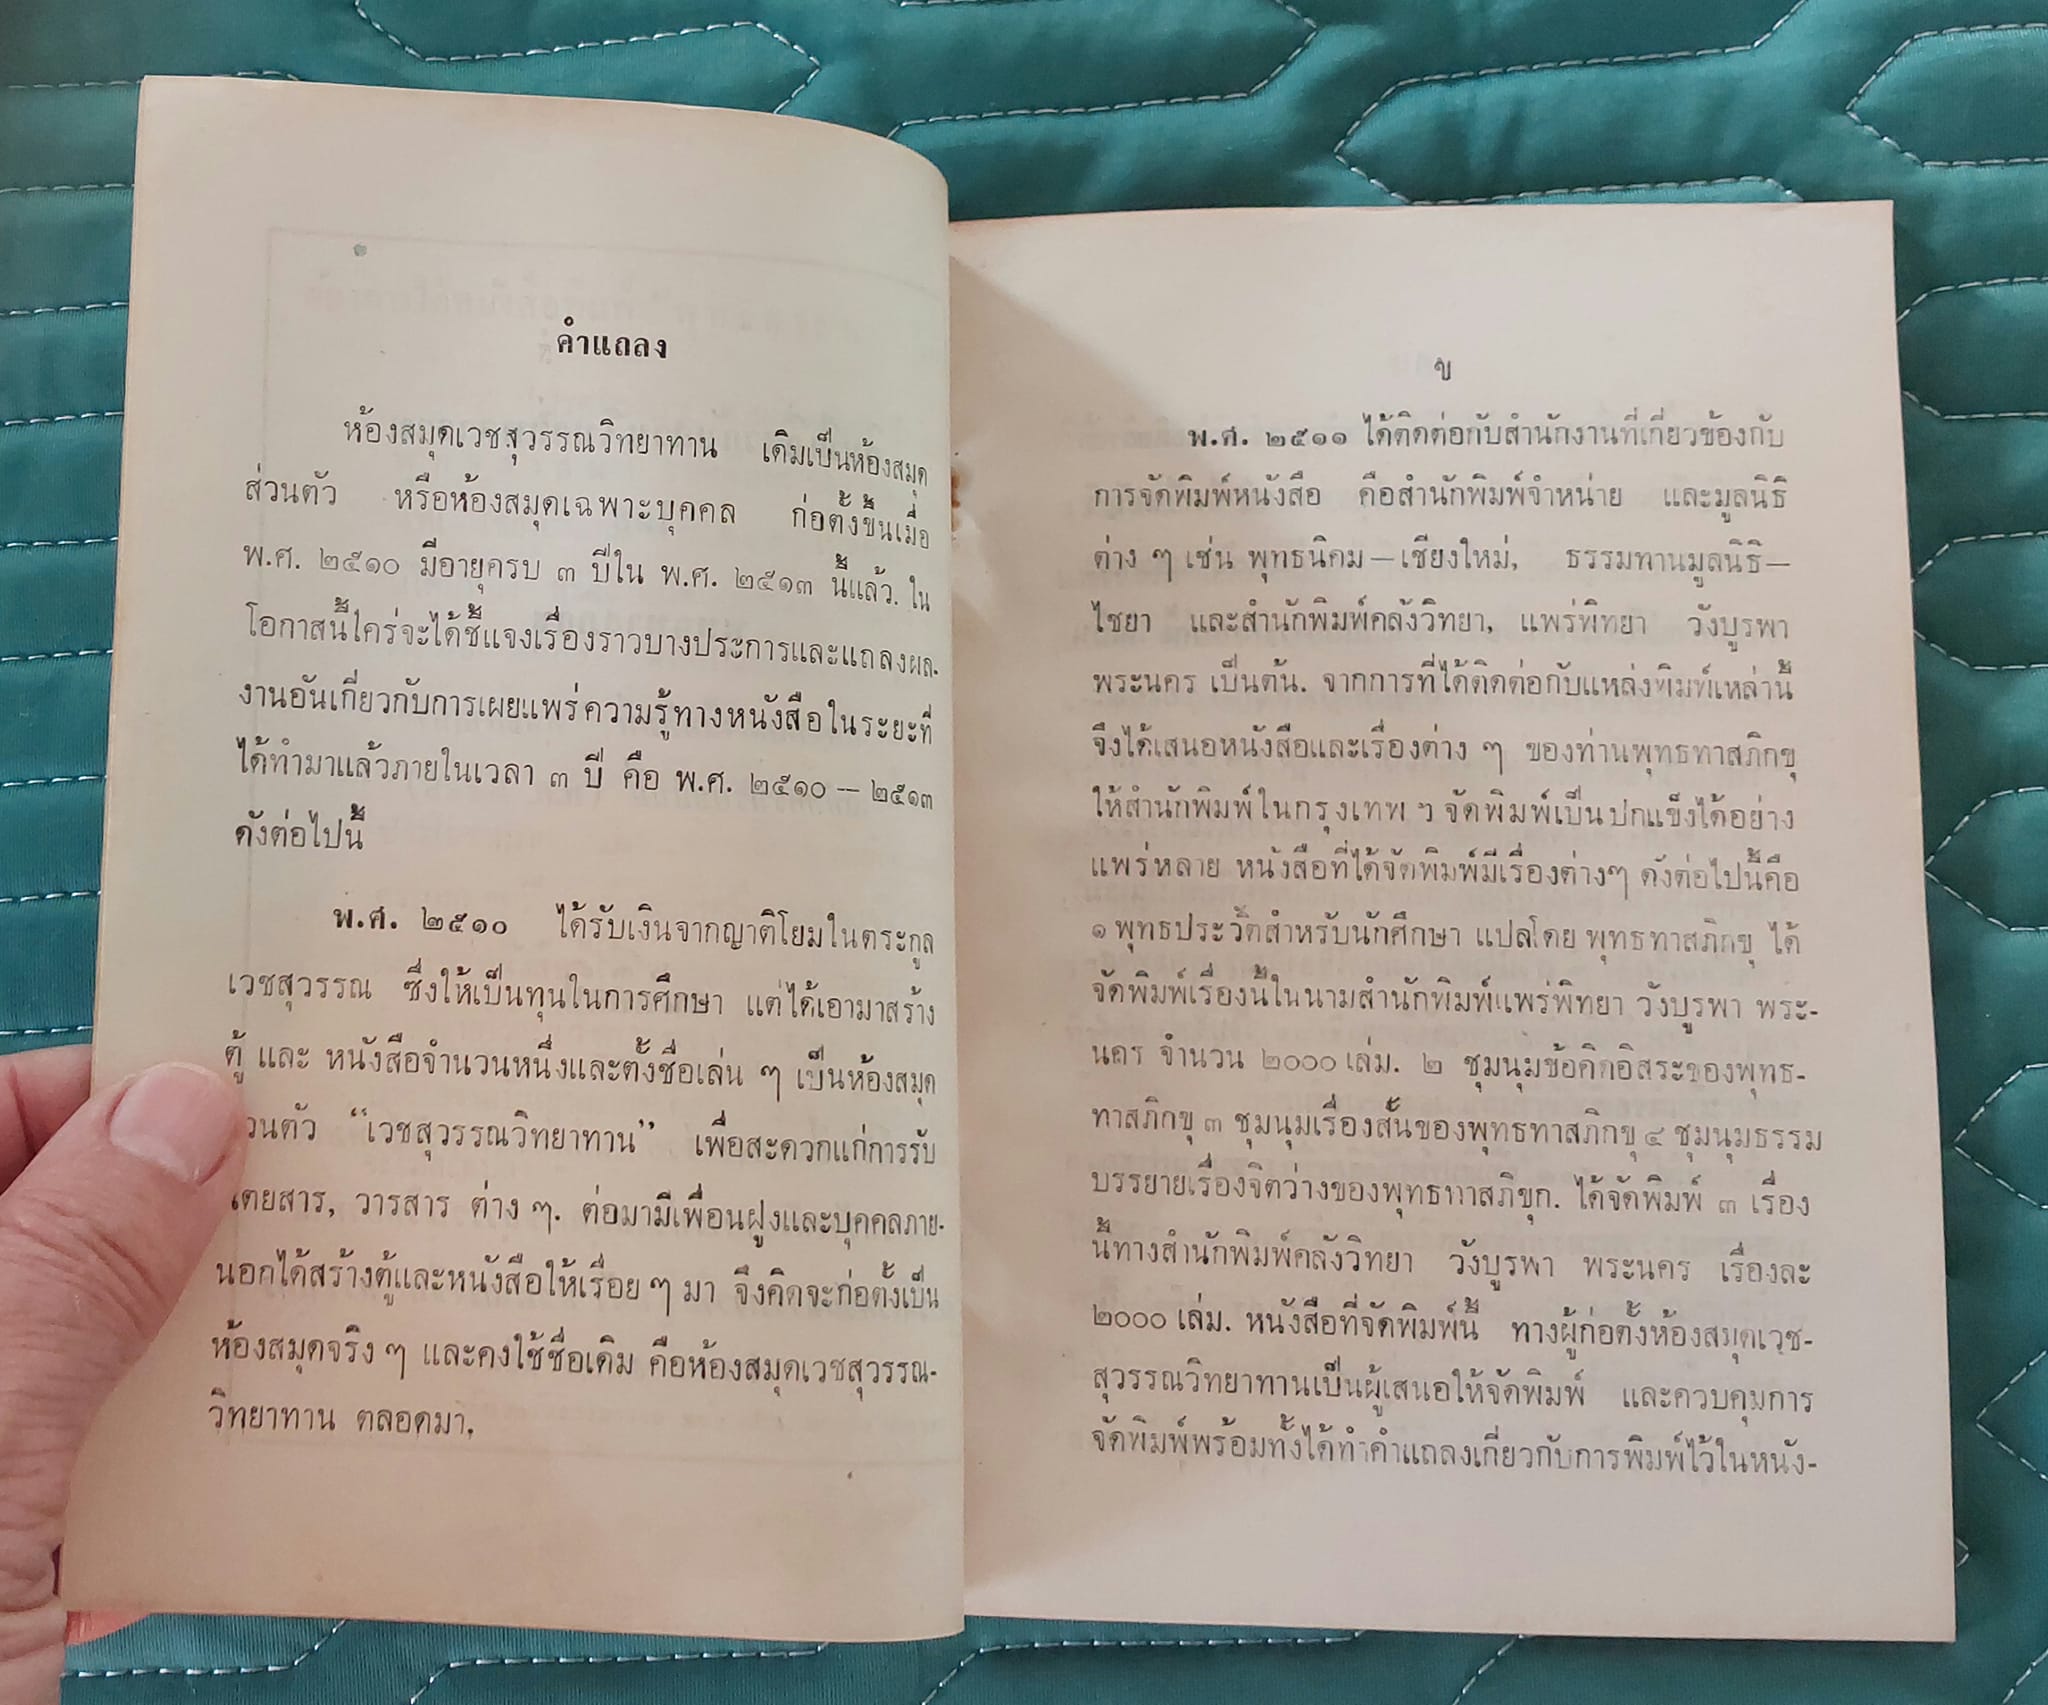 คำแถลง
ห้องสมุดเวชสุวรรณวิทยาทาน เดิมเป็นห้องสมุด
ส่วนตัว หรือห้องสมุดเฉพาะบุคคล ก่อตั้งขึ้นเมื่อ
พ.ศ. ๒๕๑๐ มีอายุครบ ๓ ปีใน พ.ศ. ๒๕๑๓ นี้แล้ว. ใน
โอกาสนี้ใคร่จะได้ชี้แจงเรื่องราวบางประการและแถลงผล-
งานอันเกี่ยวกับการเผยแพร่ความรู้ทางหนังสือในระยะที่
ได้ทำมาแล้วภายในเวลา ๓ ปี คือ พ.ศ. ๒๕๑๐ — ๒๕๑๓
ดังต่อไปนี้
พ.ศ. ๒๕๑๐ ได้รับเงินจากญาติโยมในตระกูล
เวชสุวรรณ ซึ่งให้เป็นทุนในการศึกษา แต่ได้เอามาสร้าง
ตู้ และ หนังสือจำนวนหนึ่งและตั้งชื่อเล่น ๆ เป็นห้องสมุด
วนตัว “เวชสุวรรณวิทยาทาน” เพื่อสะดวกแก่การรับ
ตยสาร, วารสาร ต่าง ๆ. ต่อมามีเพื่อนฝูงและบุคคลภาย-
นอกได้สร้างตู้และหนังสือให้เรื่อย ๆ มา จึงคิดจะก่อตั้งเป็น
ห้องสมุดจริง ๆ และคงใช้ชื่อเดิม คือห้องสมุดเวชสุวรรณ-
วิทยาทาน ตลอดมา.
ข
พ.ศ. ๒๕๑๑ ได้ติดต่อกับสำนักงานที่เกี่ยวข้องกับ
การจัดพิมพ์หนังสือ คือสำนักพิมพ์จำหน่าย และมูลนิธิ
ต่าง ๆ เช่น พุทธนิคม — เชียงใหม่, ธรรมทานมูลนิธิ —
ไชยา และสำนักพิมพ์คลังวิทยา, แพร่พิทยา วังบูรพา
พระนคร เป็นต้น. จากการที่ได้ติดต่อกับแหล่งพิมพ์เหล่านี้
จึงได้เสนอหนังสือและเรื่องต่าง ๆ ของท่านพุทธทาสภิกขุ
ให้สำนักพิมพ์ในกรุงเทพ ฯ จัดพิมพ์เป็นปกแข็งได้อย่าง
แพร่หลาย หนังสือที่ได้จัดพิมพ์มีเรื่องต่างๆ ดังต่อไปนี้คือ
๑ พุทธประวัติสำหรับนักศึกษา แปลโดย พุทธทาสภิกขุ ได้
จัดพิมพ์เรื่องนี้ในนามสำนักพิมพ์แพร่พิทยา วังบูรพา พระ-
นคร จำนวน ๒๐๐๐ เล่ม. ๒ ชุมนุมข้อคิดอิสระของพุทธ-
ทาสภิกขุ ๓ ชุมนุมเรื่องสั้นของพุทธทาสภิกขุ ๔ ชุมนุมธรรม
บรรยายเรื่องจิตว่างของพุทธทาสภิขุก. ได้จัดพิมพ์ ๓ เรื่อง
นี้ทางสำนักพิมพ์คลังวิทยา วังบูรพา พระนคร เรื่องละ
๒๐๐๐ เล่ม. หนังสือที่จัดพิมพ์นี้ ทางผู้ก่อตั้งห้องสมุดเวช-
สุวรรณวิทยาทานเป็นผู้เสนอให้จัดพิมพ์ และควบคุมการ
จัดพิมพ์พร้อมทั้งได้ทำคำแถลงเกี่ยวกับการพิมพ์ไว้ในหนัง-